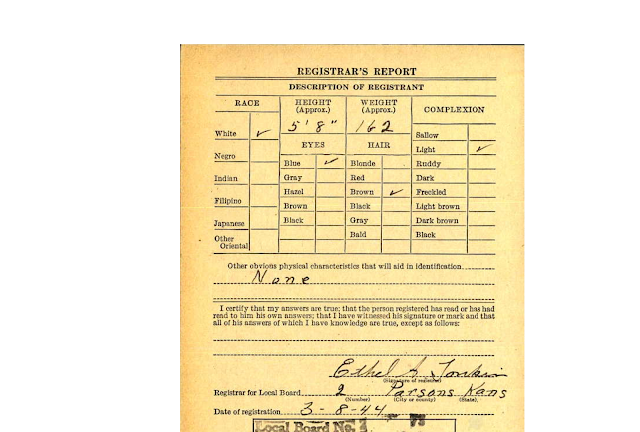 REGISTRAR'S REPORT
DESCRIPTION OF REGISTRANT
RACE HEIGHT (Approx.) WEIGHT (Approx.) COMPLEXION
5' 8" 162
White ✓
Negro
Indian
Filipino
Japanese
Other Oriental
EYES
Blue ✓
Gray
Hazel
Brown
Black
HAIR
Blonde
Red
Brown ✓
Black
Gray
Bald
Sallow
Light ✓
Ruddy
Dark
Freckled
Light brown
Dark brown
Black
Other obvious physical characteristics that will aid in identification
None
I certify that my answers are true; that the person registered has read or has had
read to him his own answers; that I have witnessed his signature or mark and that
all of his answers of which I have knowledge are true, except as follows:
Ethel
(Signature of registrar)
Registrar for Local Board 2 Parsons Kans
(Number) (City or county) (State)
Date of registration 3-8-44
Local Board No.